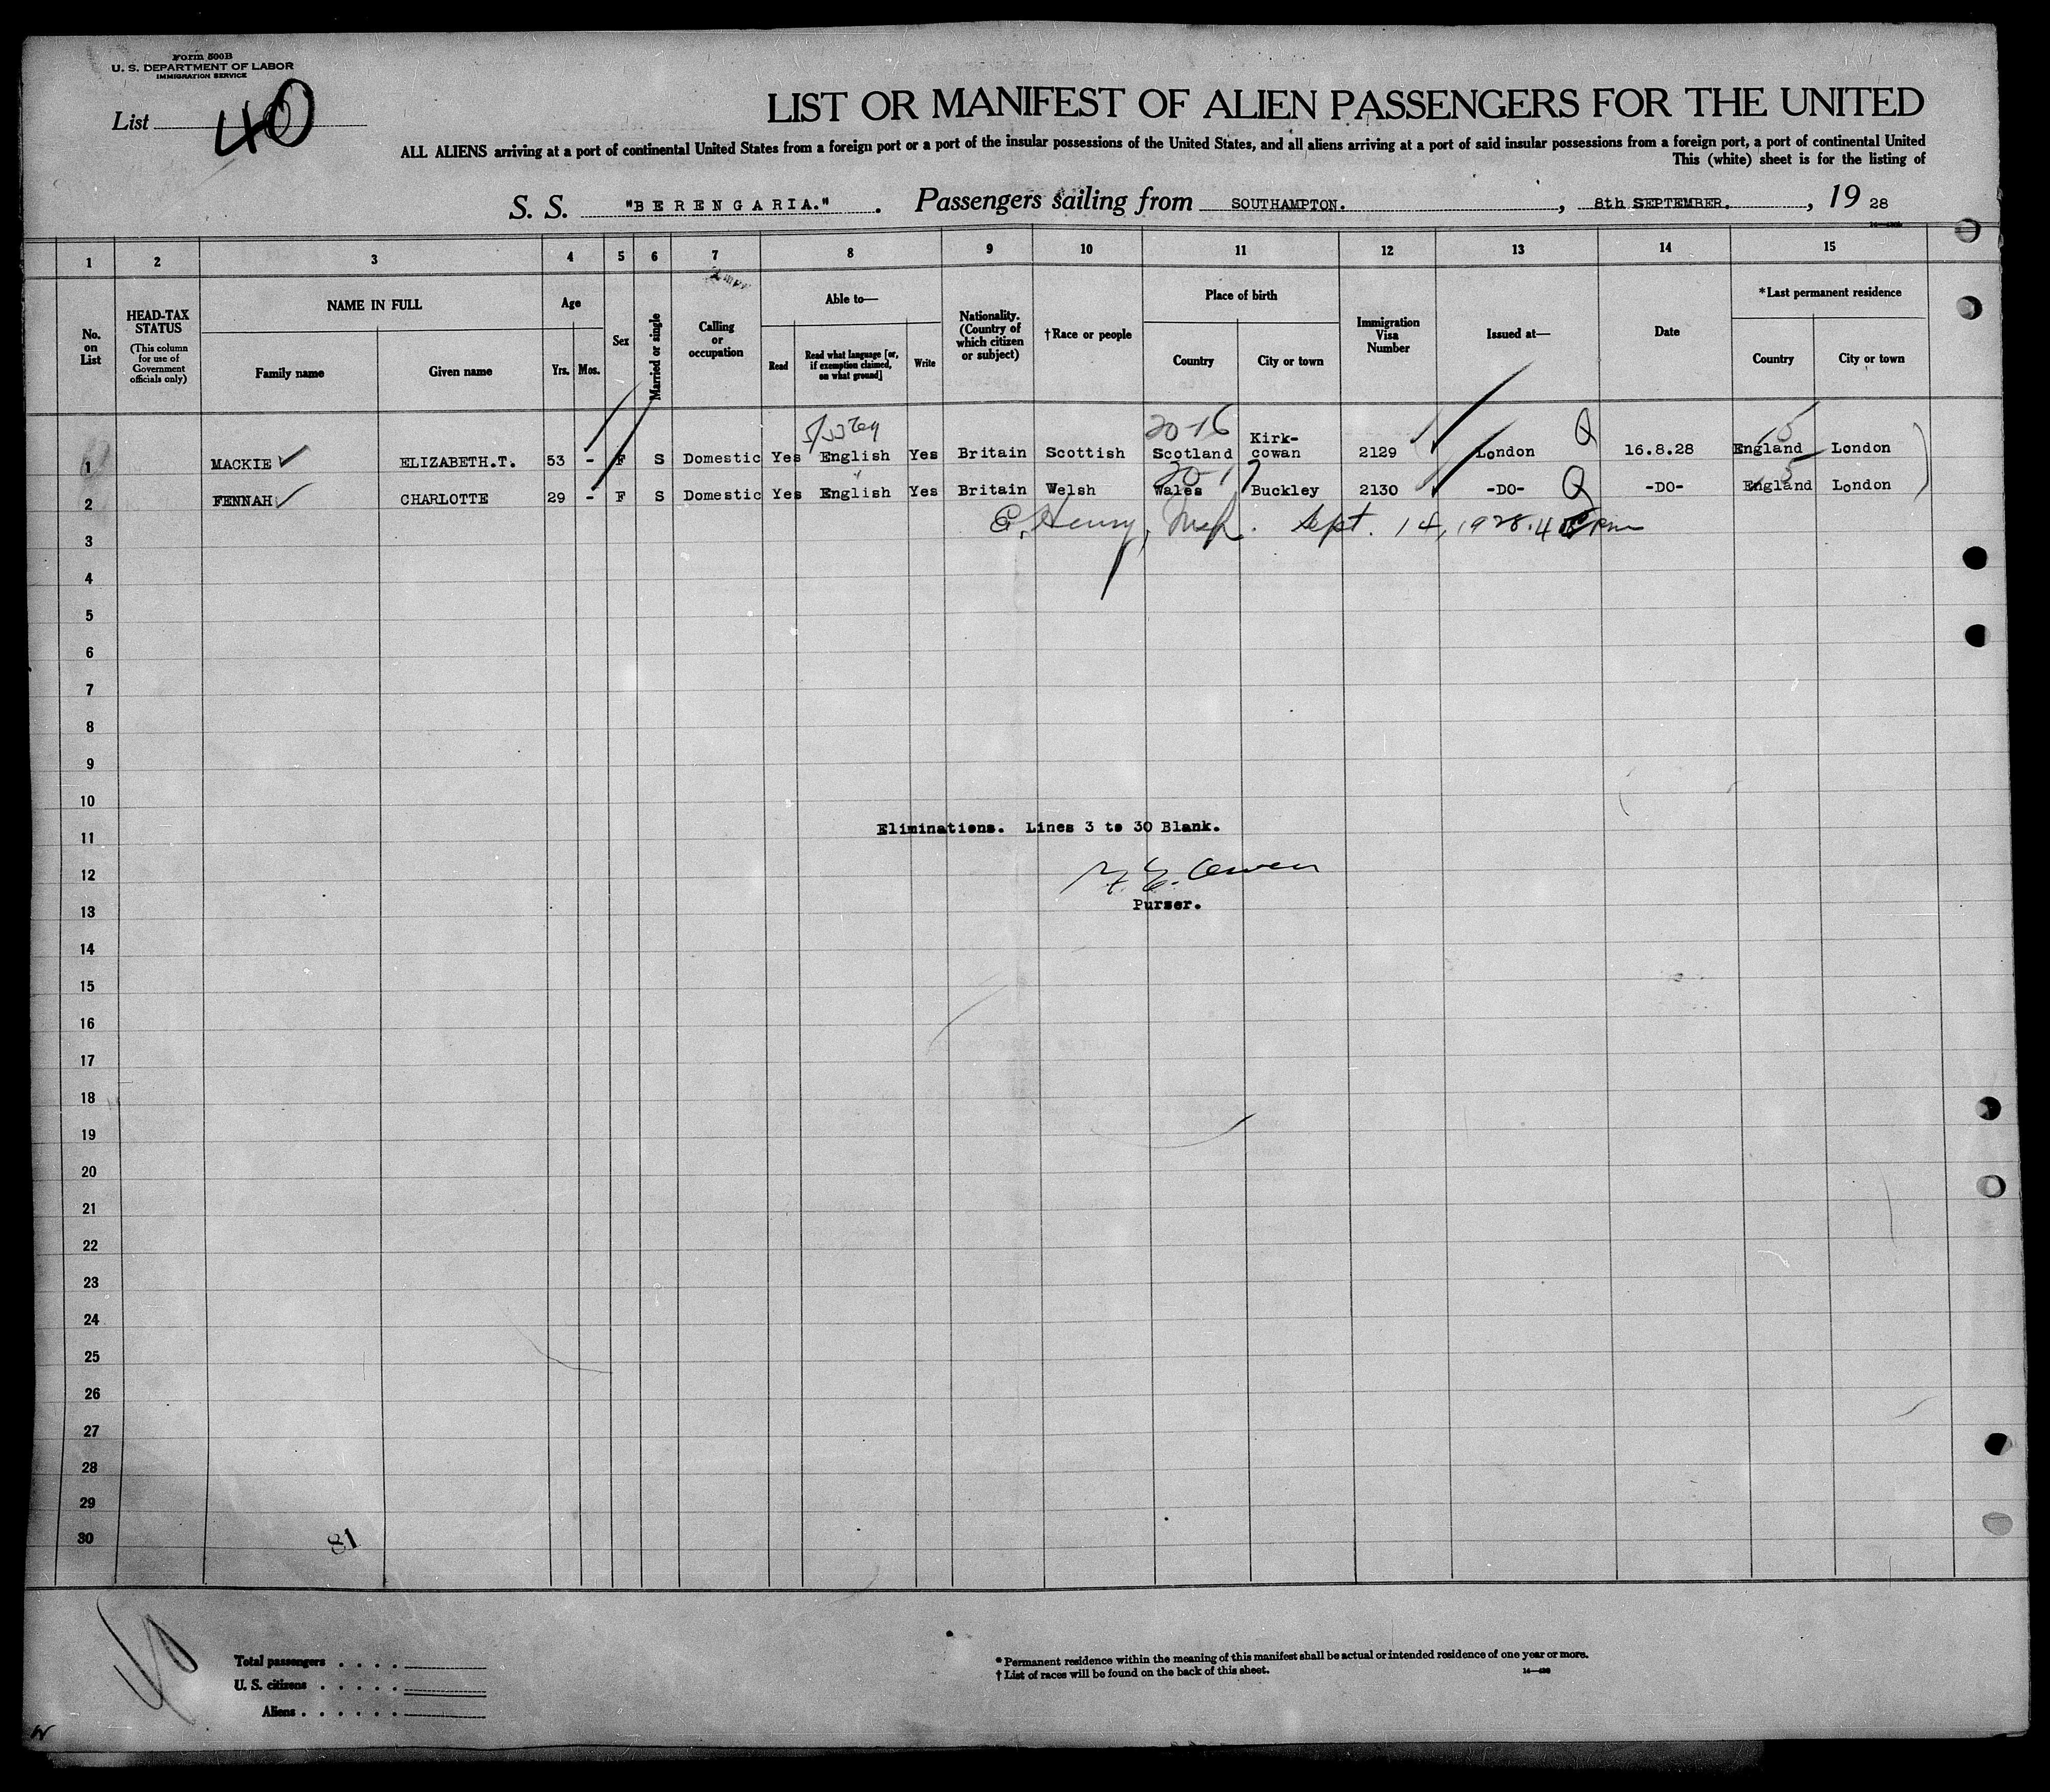 Form 500B
U. S. DEPARTMENT OF LABOR
IMMIGRATION SERVICE
List 40
LIST OR MANIFEST OF ALIEN PASSENGERS FOR THE UNITED
ALL ALIENS arriving at a port of continental United States from a foreign port or a port of the insular possessions of the United States, and all aliens arriving at a port of said insular possessions from a foreign port, a port of continental United
This (white) sheet is for the listing of
S. S. "BERENGARIA." . Passengers sailing from SOUTHAMPTON. , 8th SEPTEMBER. , 19 28
1 2 3 4 5 6 7 8 9 10 11 12 13 14 15
No. on List
HEAD-TAX STATUS
(This column for use of Government officials only)
NAME IN FULL
Family name
Given name
Age
Yrs. Mos.
Sex
Married or single
Calling or occupation
Able to—
Read
Read what language [or, if exemption claimed, on what ground]
Write
Nationality. (Country of which citizen or subject)
†Race or people
Place of birth
Country
City or town
Immigration Visa Number
Issued at—
Date
*Last permanent residence
Country
City or town
20-16
1 MACKIE ELIZABETH.T. 53 - F S Domestic Yes English Yes Britain Scottish Scotland Kirk-cowan 2129 London Q 16.8.28 England London
20-17
2 FENNAH CHARLOTTE 29 - F S Domestic Yes English Yes Britain Welsh Wales Buckley 2130 -DO- Q -DO- England London
E. Henry, Sept. 14, 1928. 4 pm
3
4
5
6
7
8
9
10
11 Eliminations. Lines 3 to 30 Blank.
12 Owen
13 Purser.
14
15
16
17
18
19
20
21
22
23
24
25
26
27
28
29
30
81
Total passengers . . . .
U. S. citizens . . . . .
Aliens . . . . . .
* Permanent residence within the meaning of this manifest shall be actual or intended residence of one year or more.
† List of races will be found on the back of this sheet.